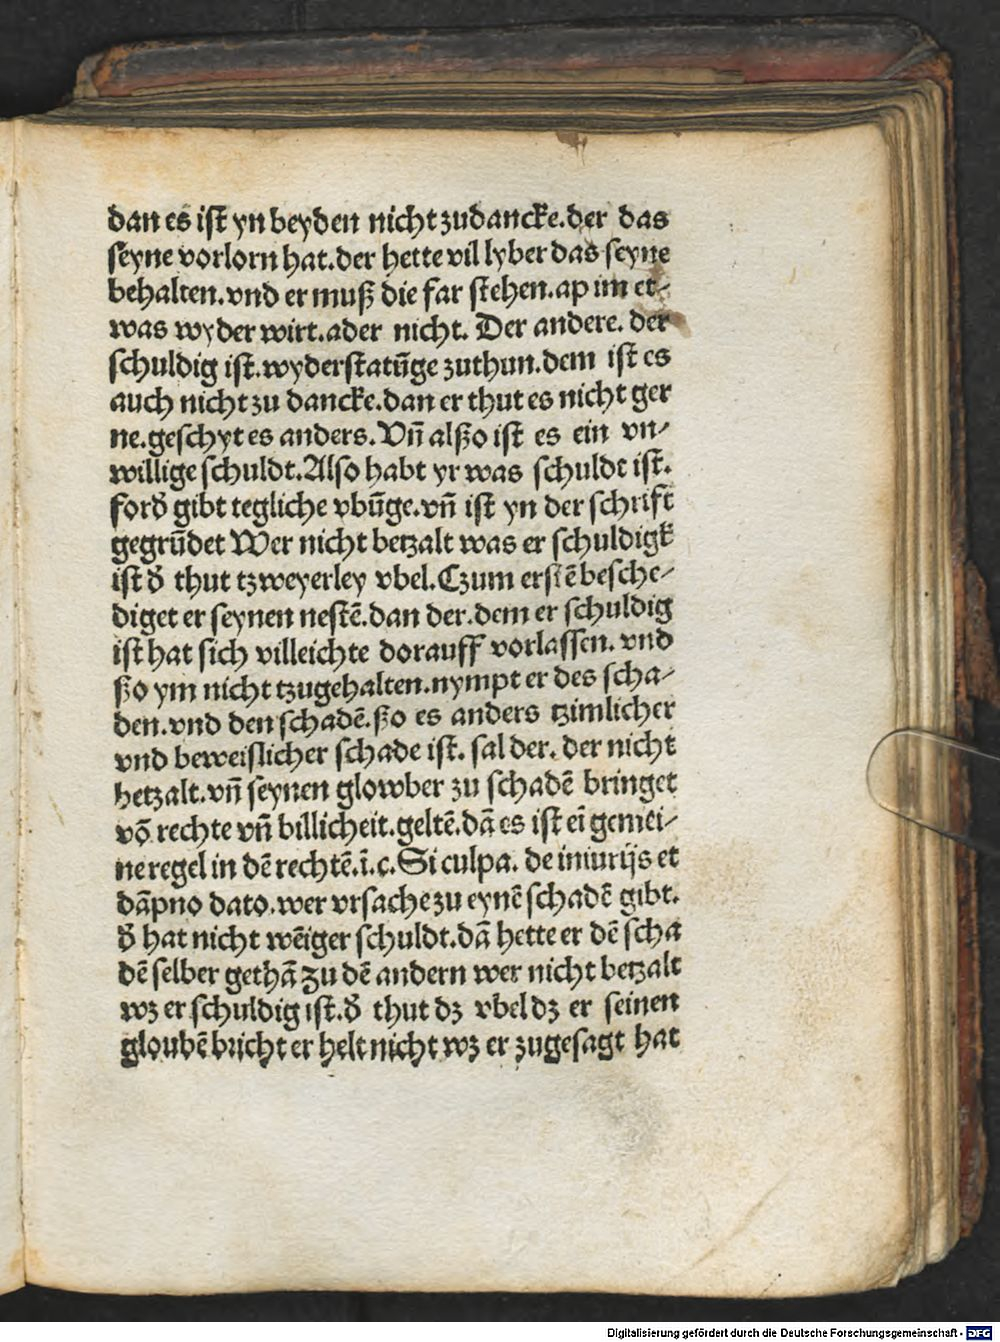 dan es ist yn beyden nicht zudancke.der das
seyne vorlorn hat.der hette vil lyber das seyne
behalten.vnd er muß die far stehen.ap im et⸗
was wyder wirt.ader nicht. Der andere. der
schuldig ist.wyderstatūge zuthun.dem ist es
auch nicht zu dancke.dan er thut es nicht ger
ne.geschyt es anders.Vn̄ alßo ist es ein vn⸗
willige schuldt.Also habt yr was schuldt ist.
ford̕ gibt tegliche vbūge.vn̄ ist yn der schrift
gegrūdet Wer nicht betzalt was er schuldigk
ist d̕ thut tzweyerley vbel.Czum erstē besche⸗
diget er seynen nestē.dan der.dem er schuldig
ist hat sich villeichte dorauff vorlassen. vnd
ßo ym nicht tzugehalten.nympt er des scha⸗
den.vnd den schadē.ßo es anders tzimlicher
vnd beweislicher schade ist. sal der. der nicht
betzalt.vn̄ seynen glowber zu schadē bringet
vō rechte vn̄ billicheit.geltē.dā es ist eī gemei⸗
ne regel in dē rechtē.ī.c.Si culpa. de iniurijs et
dāpno dato.wer vrsache zu eynē schadē gibt.
d̕ hat nicht wēiger schuldt.dā hette er dē scha
dē selber gethā zu dē andern wer nicht betzalt
wz er schuldig ist.d̕ thut dz vbel dz er seinen
gloubē bricht er helt nicht wz er zugesagt hat
Digitalisierung gefördert durch die Deutsche Forschungsgemeinschaft - DFG